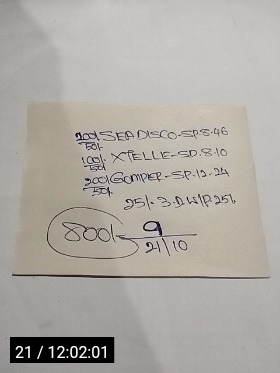 200/- SEADISCO-SP.8-46
50/-
100/- XTELLE-SP.8-10
50/-
200/- GOMPER-SP-12-24
50/-
25/-3.D.W/P.25/-
800/- 9
21/10
21 / 12:02:01